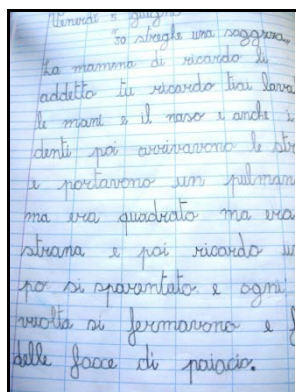 Venerdì 5 giugno
30 streghe una saggezza
La mamma di ricardo li
addetto tu ricardo tiai lava
le mani e il naso e anche i
denti poi arrivavono le str
e portavono un pulman
ma era quadrato ma era
strana e poi ricardo u
po si sparentato e ogni
vuolta si fermavono e f
delle facce di paiacio.